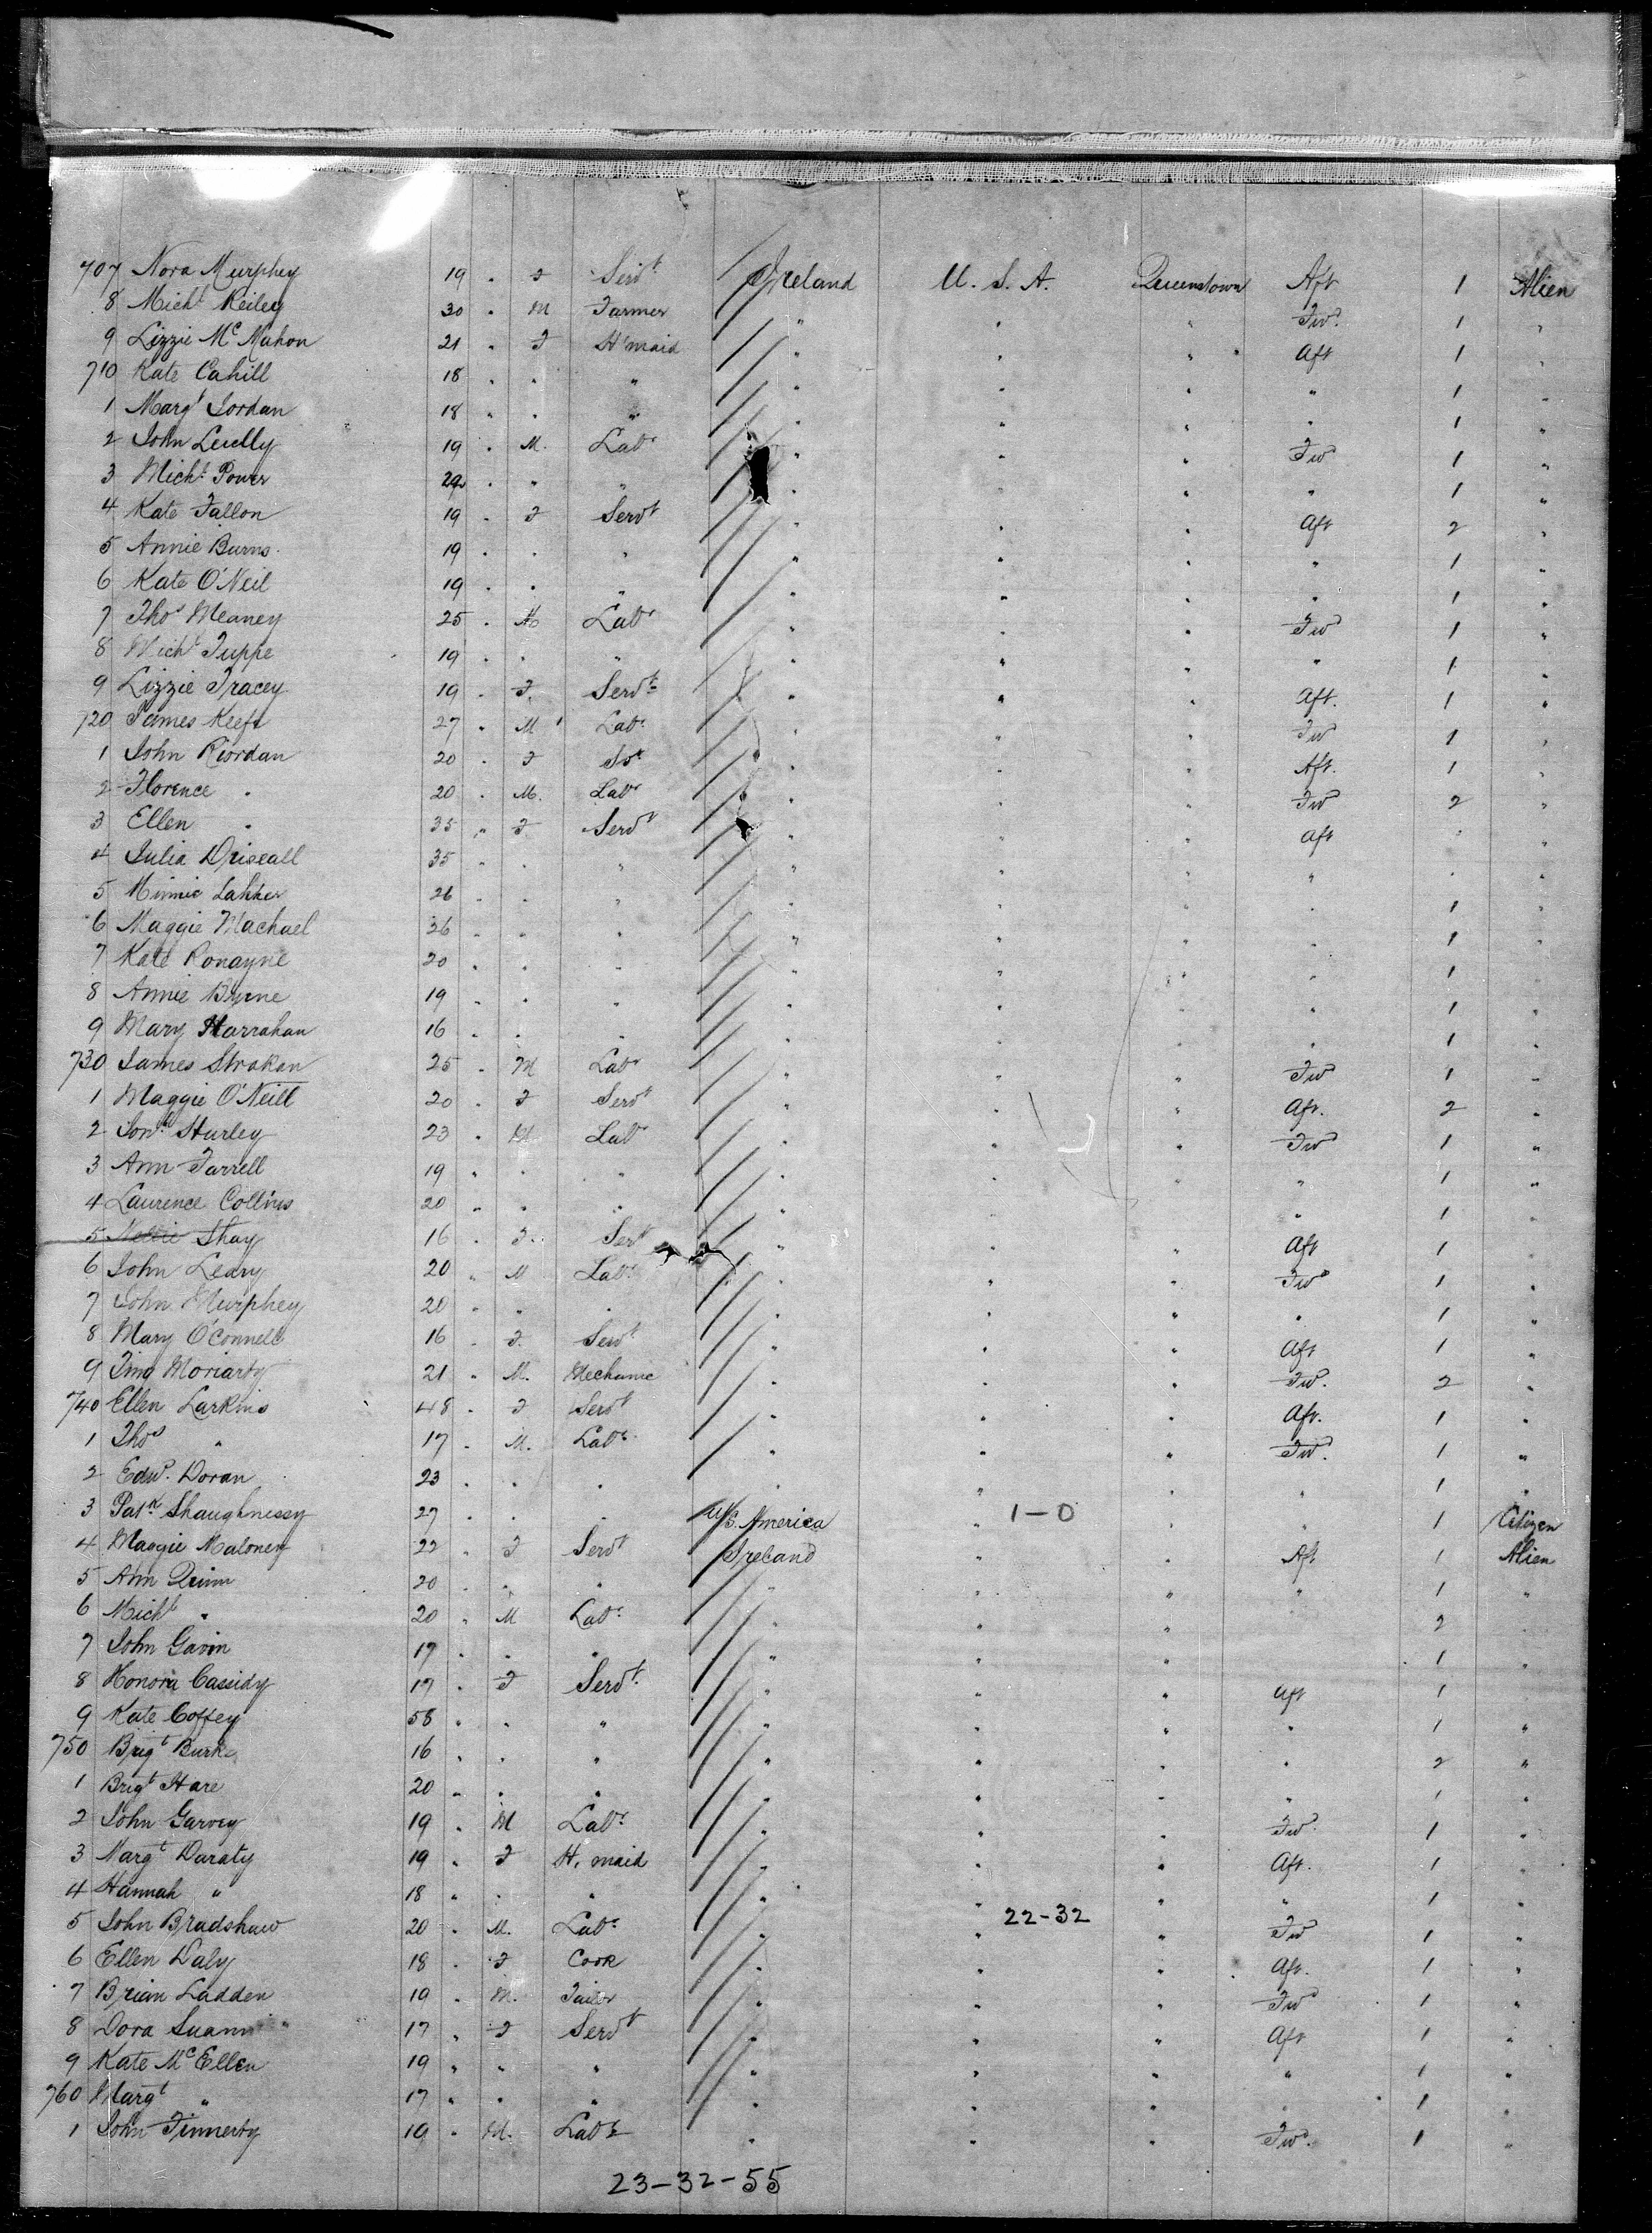 707 Nora Murphey 19 " F Servt Ireland U. S. A. Queenstown Aft 1 Alien
8 Michl Keiley 30 " M Farmer " " " Fwd. 1 "
9 Lizzie Mc Mahon 21 " F H'maid " " " Aft 1 "
710 Kate Cahill 18 " " " " " " " 1 "
1 Margt Jordan 18 " " " " " " " 1 "
2 John 19 " M. Labr " " " Fwd 1 "
3 Michl Power " " " " " " " 1 "
4 Kate Fallon 19 " F Servt " " " Aft 2 "
5 Annie Burns 19 " " " " " " " 1 "
6 Kate O'Neil 19 " " " " " " " 1 "
7 Thos Meaney 25 " M Labr " " " Fwd 1 "
8 Michl Tuppe 19 " " " " " " " 1 "
9 Lizzie Tracey 19 " F. Servt " " " Aft. 1 "
720 James Keefe 27 " M Labr " " " Fwd 1 "
1 John Riordan 20 " F Svt " " " Aft. 1 "
2 Florence " 20 " M. Labr " " " Fwd 2 "
3 Ellen " 35 " F Servt " " " Aft " "
4 Julia Driscall 35 " " " " " " " " "
5 Minnie 26 " " " " " " " 1 "
6 Maggie Machael 26 " " " " " " " 1 "
7 Kate Ronayne 20 " " " " " " " 1 "
8 Annie Byrne 19 " " " " " " " 1 "
9 Mary Harrahan 16 " " " " " " " 1 "
730 James Strakan 25 " M Labr " " " Fwd 1 "
1 Maggie O'Neill 20 " F Servt " " " Aft. 2 "
2 Hurley 23 " M Labr " " " Fwd 1 "
3 Ann Farrell 19 " " " " " " " 1 "
4 Laurence Collins 20 " " " " " " " 1 "
5 Nellie Shay 16 " F. Servt " " " Aft 1 "
6 John Leary 20 " M Labr " " " Fwd 1 "
7 John Murphey 20 " " " " " " " 1 "
8 Mary O'Connell 16 " F. Servt " " " Aft 1 "
9 Timo Moriarty 21 " M. Mechanic " " " Fwd. 2 "
740 Ellen Larkins 48 " F Servt " " " Aft. 1 "
1 Thos " 17 " M. Labr " " " Fwd. 1 "
2 Edwd. Doran 23 " " " " " " " 1 "
3 Patk Shaughnessy 27 " " " U.S. America " 1-0 " " 1 Citizen
4 Maggie Maloney 22 " F Servt Ireland " " Aft 1 Alien
5 Ann Quinn 20 " " " " " " " 1 "
6 Michl " 20 " M Labr " " " 2 "
7 John Gavin 17 " " " " " " 1 "
8 Honora Cassidy 17 " F Servt " " " Aft 1 "
9 Kate Coffey 58 " " " " " " " 1 "
750 Brigt Burke 16 " " " " " " " 2 "
1 Brigt Hare 20 " " " " " " " " "
2 John Garvey 19 " M Labr " " " Fwd 1 "
3 Margt Daraty 19 " F H. maid " " " Aft. 1 "
4 Hannah " 18 " " " " " " " 1 "
5 John Bradshaw 20 " M. Labr " " 22-32 " Fwd 1 "
6 Ellen Daly 18 " F Cook " " " Aft. 1 "
7 Brian Ladden 19 " M. Tailor " " " Fwd 1 "
8 Dora 17 " F Servt " " " Aft 1 "
9 Kate McEllen 19 " " " " " " " 1 "
760 Margt " 17 " " " " " " " 1 "
1 John Finnerty 19 " M. Labr " " " Fwd. 1 "
23-32-55